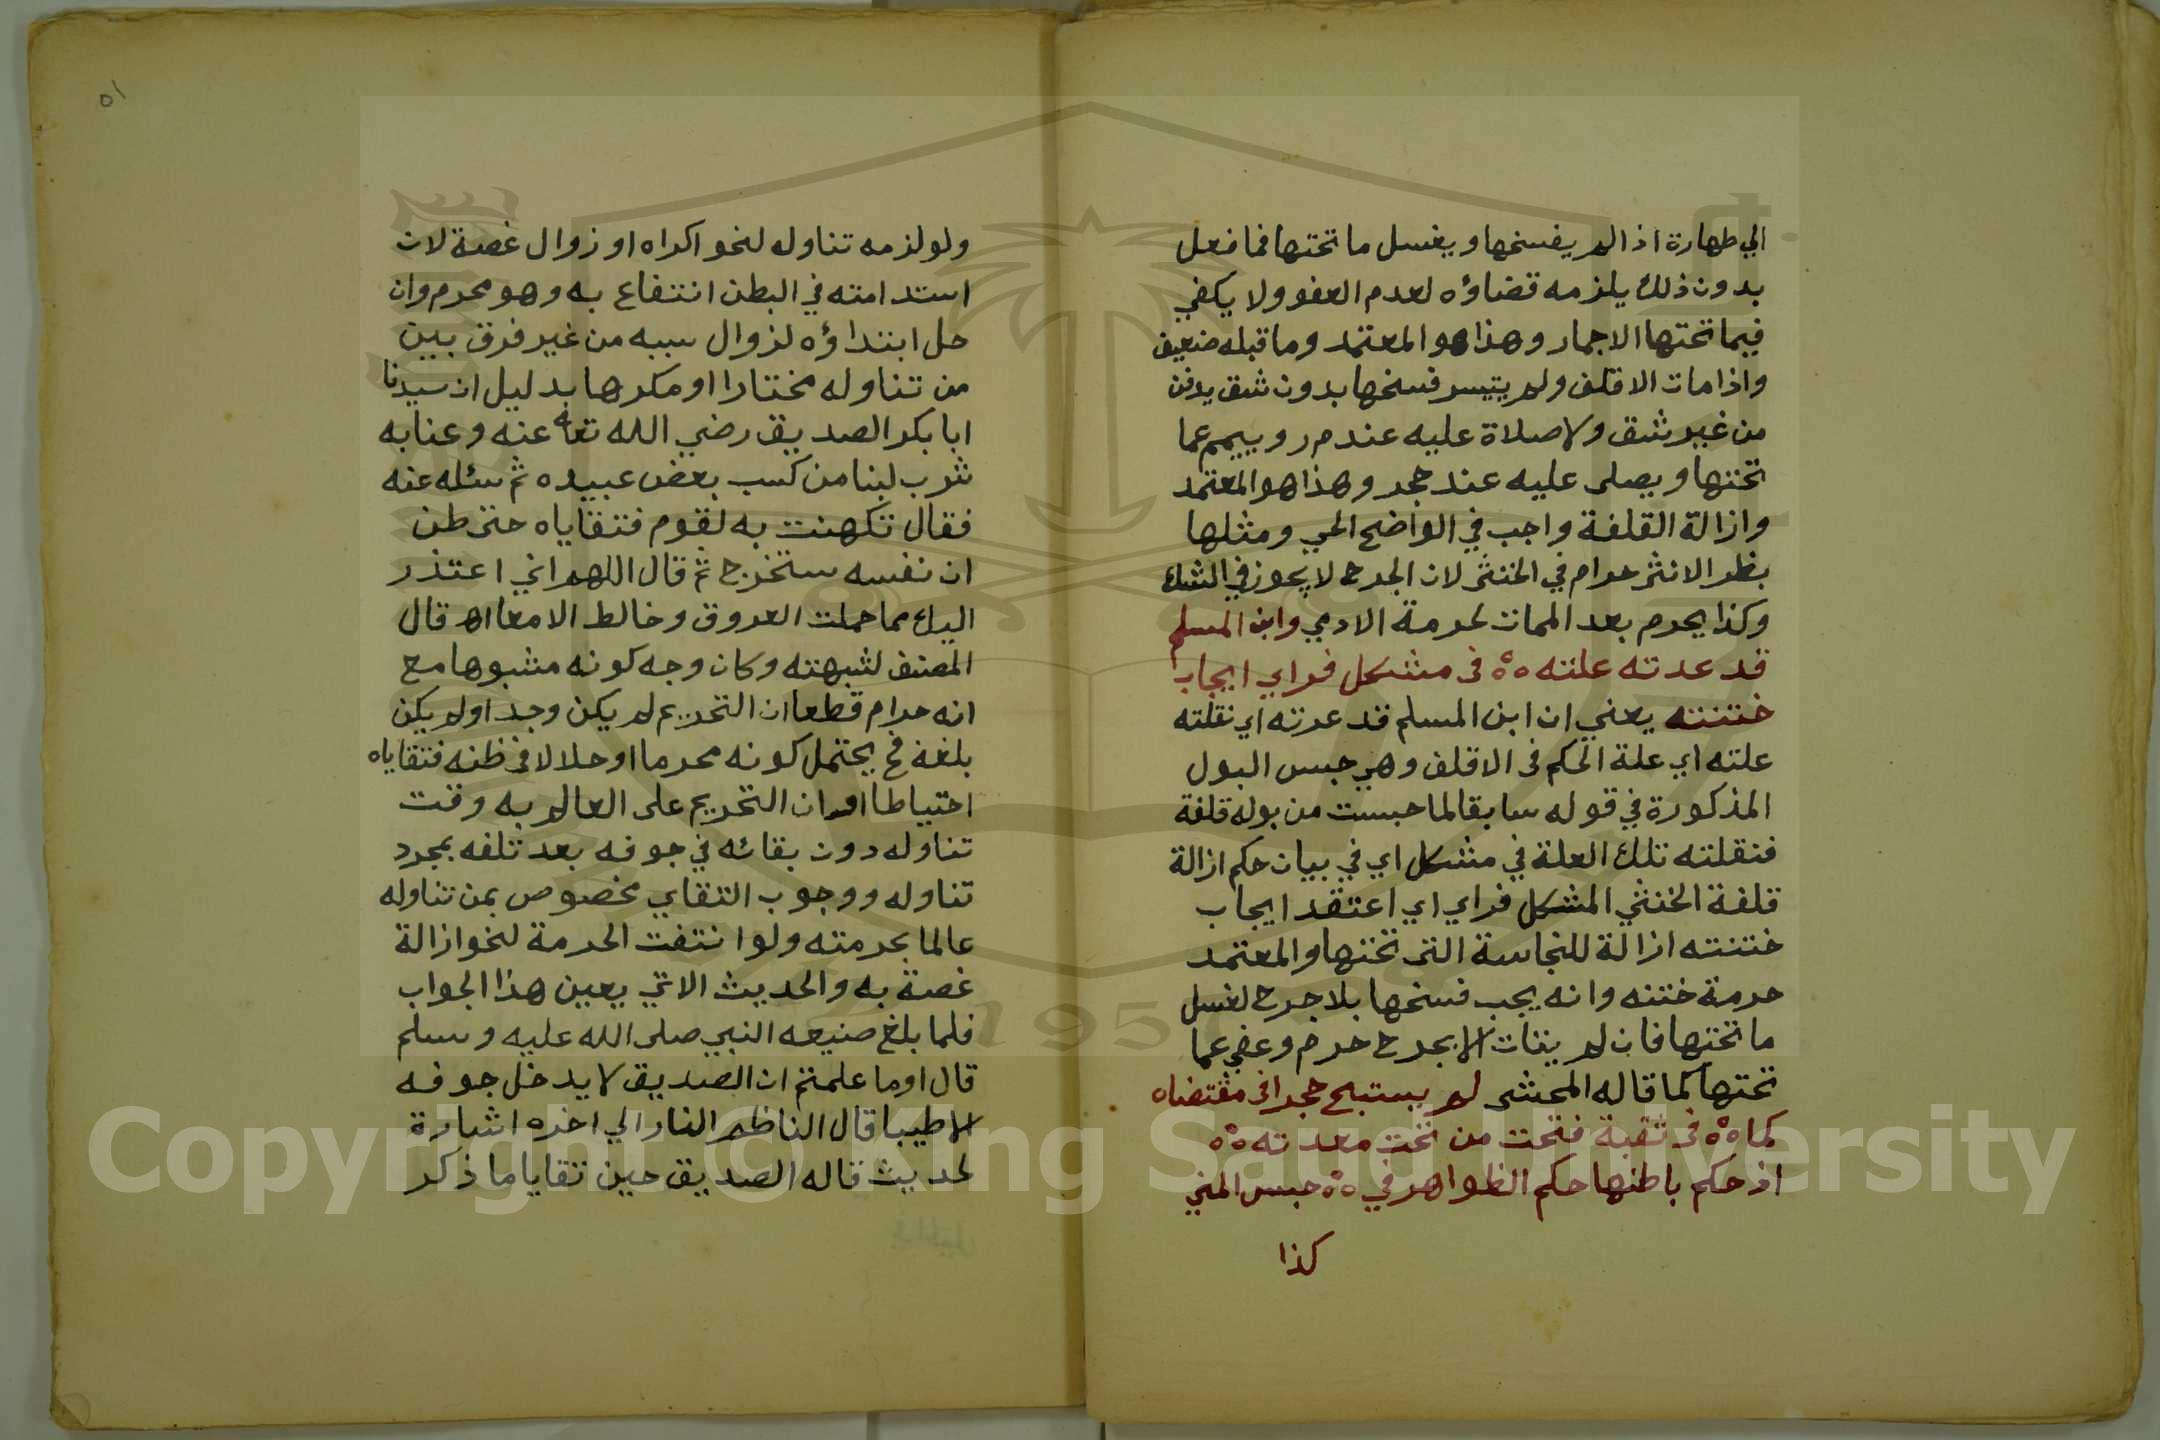 الي طهارة اذا لم يفسخها ويغسل ما تحتها فما فعل
بدون ذلك يلزمه قضاؤه لعدم العفو ولا يكفي
فيما تحتها الاجمار وهذا هو المعتمد وما قبله ضعيف
واذا مات الاقلف ولم يتيسر فسخها بدون شق يدفن
من غير شق ولا صلاة عليه عند م ر وييمم عما
تحتها ويصلى عليه عند حجر وهذا هو المعتمد
وازالة القلفة واجب في الواضح الحي ومثلها
بظر الانثى حرام في الخنثى لان الجرح لا يجوز في الشك
وكذا يحرم بعد الممات لحرمة الادمي وابن المسلم
قد عدته علته ٥٥ فى مشكل فراي ايجاب
ختنته يعني ان ابن المسلم قد عدته اي نقلته
علته اي علة الحكم فى الاقلف وهي حبس البول
المذكورة في قوله سابقا لما حبست من بوله قلفة
فنقلته تلك العلة في مشكل اي في بيان حكم ازالة
قلفة الخنثي المشكل فراي اي اعتقد ايجاب
ختنته ازالة للنجاسة التى تحتها والمعتمد
حرمة ختنه وانه يجب فسخها بلا جرح لغسل
ما تحتها فان لم يتات الا بجرح حرم وعفي عما
تحتها كما قاله المحشى لم يستبح حجرا فى مقتضاه
كما ٥٥ فى ثقبة فتحت من تحت معدته ٥٥
اذ حكم باطنها حكم الظواهر في ٥٥ حبس المني
كذا
٥١
ولو لزمه تناوله لنحو اكراه او زوال غصة لان
استدامته في البطن انتفاع به وهو محرم وان
حل ابتداؤه لزوال سببه من غير فرق بين
من تناوله مختارا او مكرها بدليل ان سيدنا
ابا بكر الصديق رضي الله تعالى عنه وعنا به
شرب لبنا من كسب بعض عبيده ثم سئله عنه
فقال تكهنت به لقوم فتقاياه حتى ظن
ان نفسه ستخرج ثم قال اللهم اني اعتذر
اليك مما حملت العروق وخالط الامعا اه قال
المصنف لشبهته وكان وجه كونه مشبوها مع
انه حرام قطعا ان التحريم لم يكن وجد او لم يكن
بلغه فح يحتمل كونه محرما او حلالا فى ظنه فتقاياه
احتياطا او ان التحريم على العالم به وقت
تناوله دون بقائه في جوفه بعد تلفه بمجرد
تناوله ووجوب التقاي مخصوص بمن تناوله
عالما بحرمته ولو انتفت الحرمة لنحو ازالة
غصة به والحديث الاتي يعين هذا الجواب
فلما بلغ صنيعه النبي صلى الله عليه وسلم
قال اوما علمتم ان الصديق لا يدخل جوفه
الا طيبا قال الناظم النار الي اخره اشارة
لحديث قاله الصديق حين تقايا ما ذكر
Copyright © King Saud University
1957